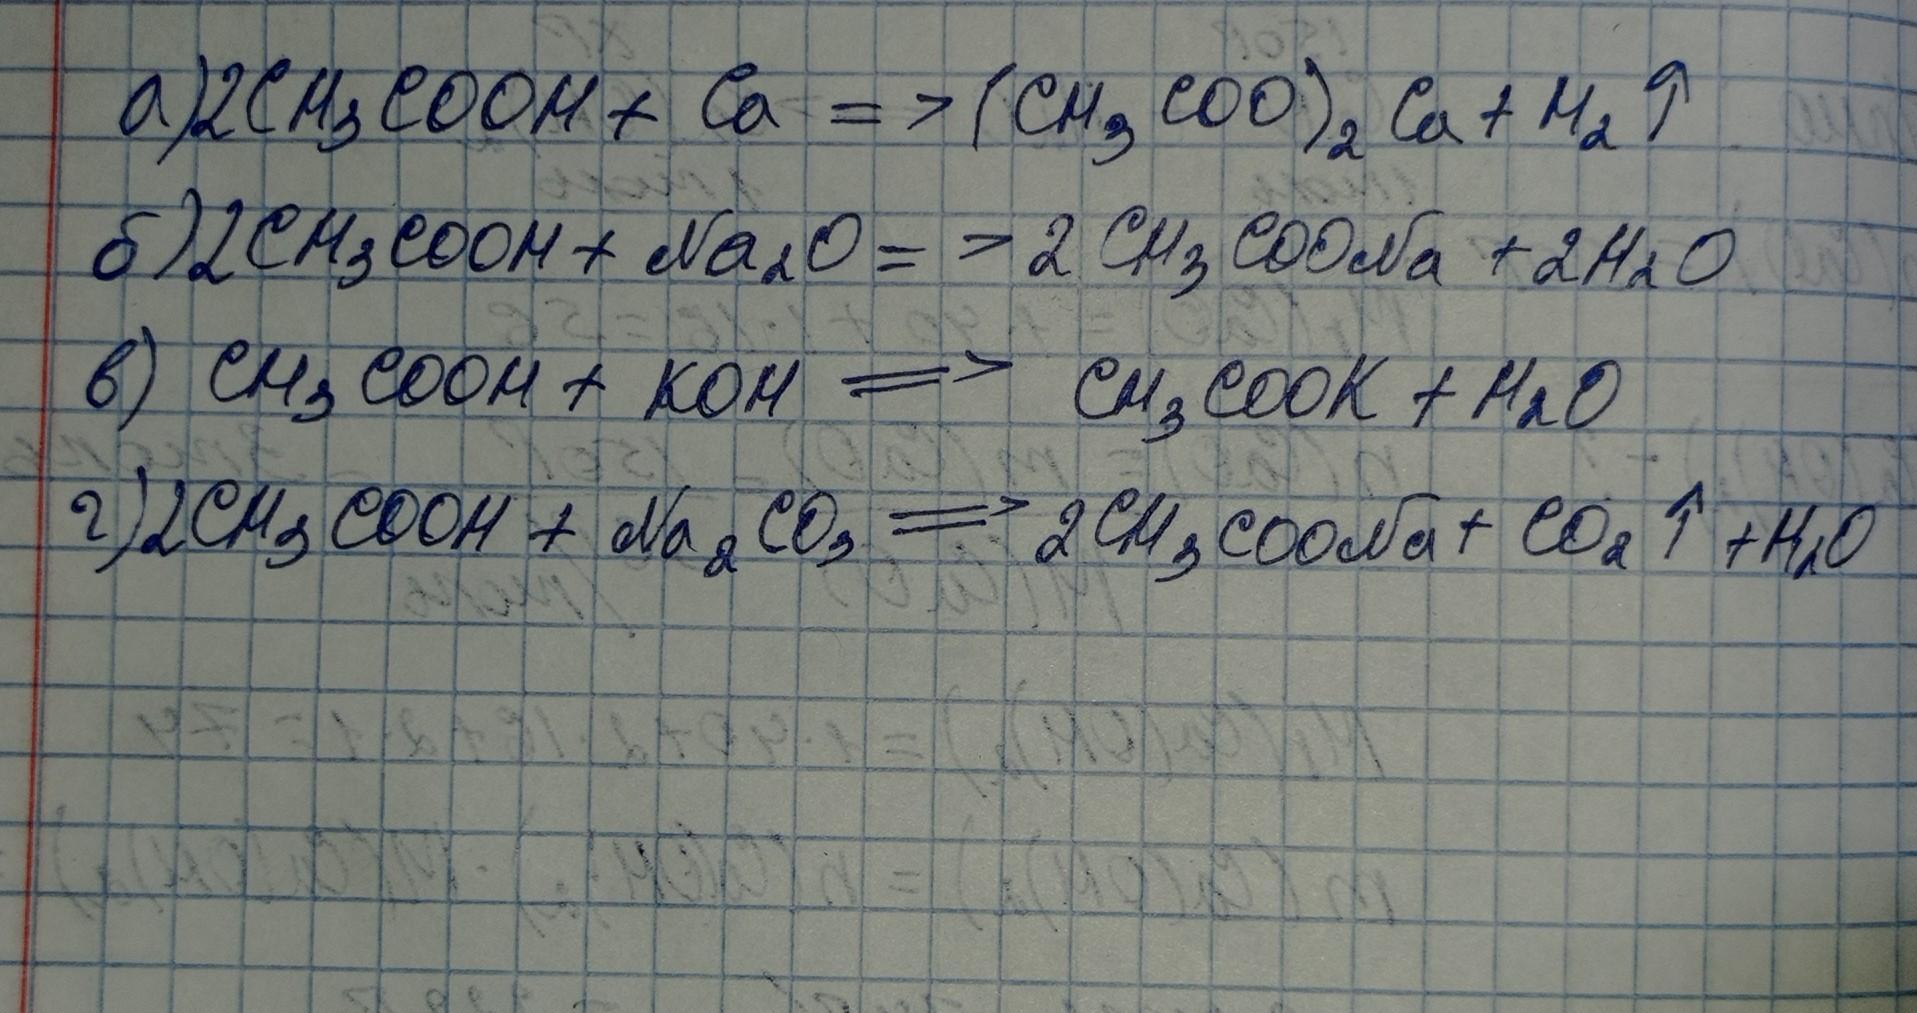 а) 2CH₃COOH + Ca => (CH₃COO)₂Ca + H₂↑
б) 2CH₃COOH + Na₂O => 2CH₃COONa + 2H₂O
в) CH₃COOH + KOH => CH₃COOK + H₂O
г) 2CH₃COOH + Na₂CO₃ => 2CH₃COONa + CO₂↑ + H₂O